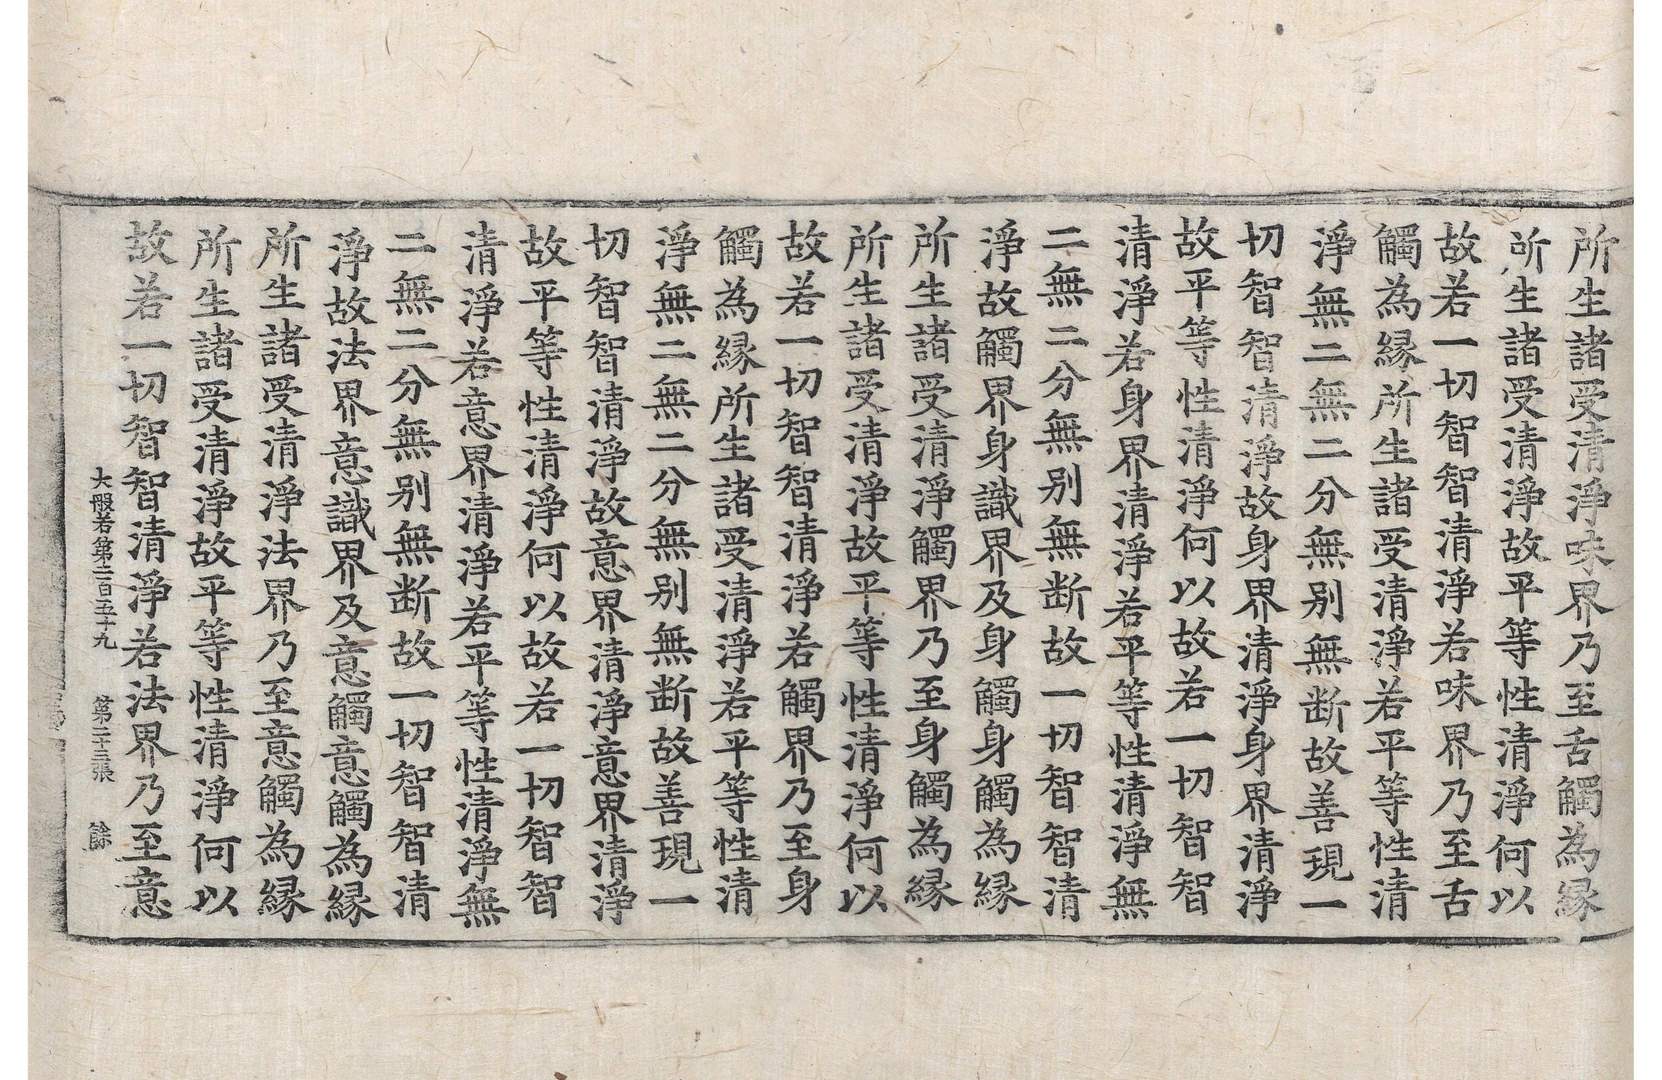 所生諸受清淨味界乃至舌觸為縁
所生諸受清淨故平等性清淨何以
故若一切智智清淨若味界乃至舌
觸為縁所生諸受清淨若平等性清
淨無二無二分無别無断故善現一
切智智清淨故身界清淨身界清淨
故平等性清淨何以故若一切智智
清淨若身界清淨若平等性清淨無
二無二分無别無断故一切智智清
淨故觸界身識界及身觸身觸為縁
所生諸受清淨觸界乃至身觸為縁
所生諸受清淨故平等性清淨何以
故若一切智智清淨若觸界乃至身
觸為縁所生諸受清淨若平等性清
淨無二無二分無别無断故善現一
切智智清淨故意界清淨意界清淨
故平等性清淨何以故若一切智智
清淨若意界清淨若平等性清淨無
二無二分無别無断故一切智智清
淨故法界意識界及意觸意觸為縁
所生諸受清淨法界乃至意觸為縁
所生諸受清淨故平等性清淨何以
故若一切智智清淨若法界乃至意
大般若第二百五十九 第二十三張 餘